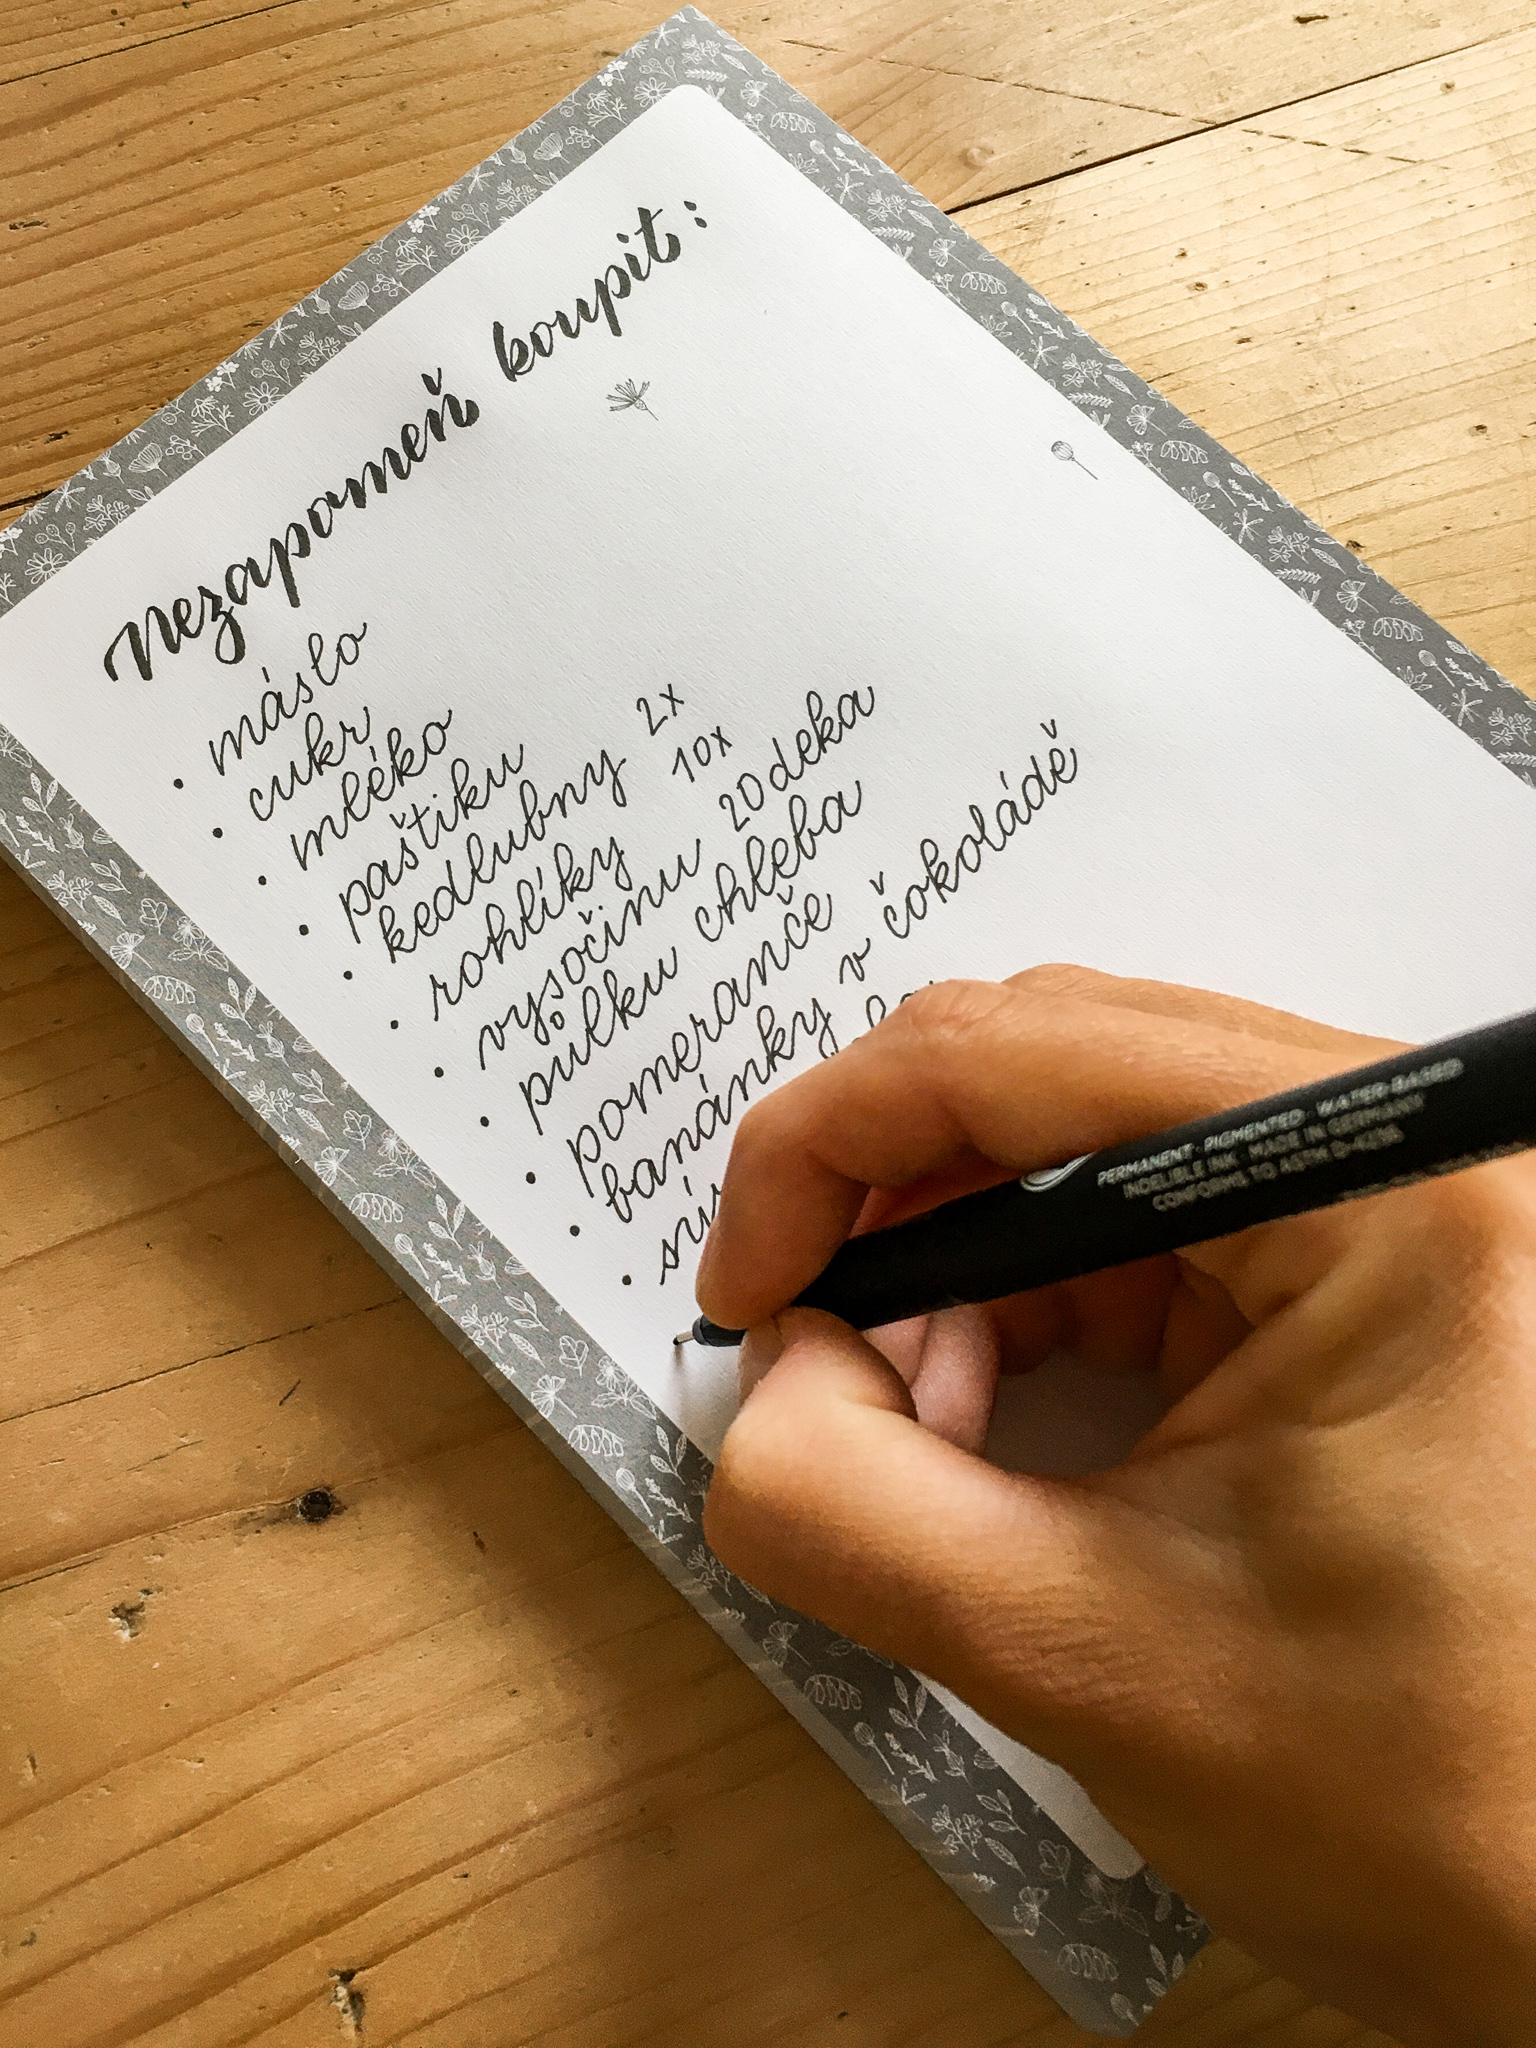 Nezapomeň koupit:
• máslo
• cukr
• mléko
• paštiku
• kedlubny 2x
• rohlíky 10x
• vysočinu 20 deka
• půlku chleba
• pomeranče
• banánky v čokoládě
PERMANENT · PIGMENTED · WATER-BASED
INDELIBLE INK MADE IN GERMANY
CONFORMS TO ASTM D-4236